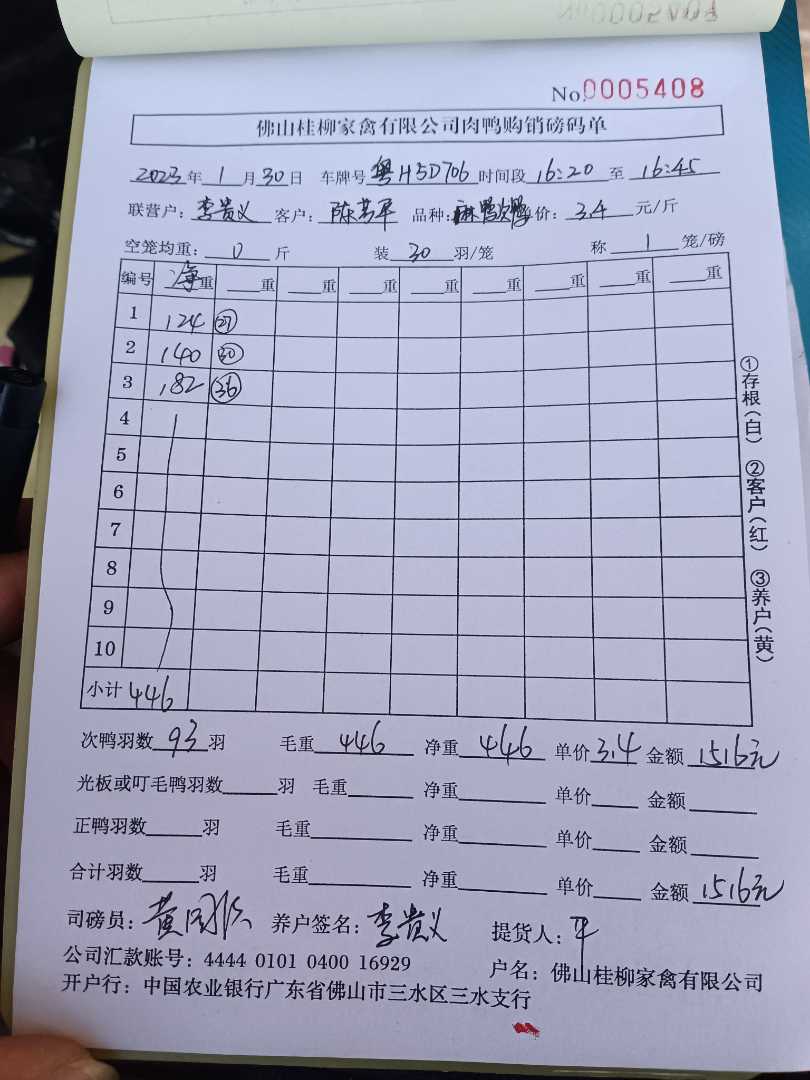 No.0005408
佛山桂柳家禽有限公司肉鸭购销磅码单
2023年 1 月 30 日 车牌号 粤H5D706 时间段 16:20 至 16:45
联营户: 李贵义 客户: 陈 平 品种: 麻鸭次鸭 单价: 3.4 元/斤
空笼均重: 0 斤 装 30 羽/笼 称 1 笼/磅
编号 净重 重 重 重 重 重 重 重 重
1 124 27
2 140 30
3 182 36
4
5
6
7
8
9
10
小计 446
①存根(白) ②客户(红) ③养户(黄)
次鸭羽数 93 羽 毛重 446 净重 446 单价 3.4 金额 1516元
光板或叮毛鸭羽数 羽 毛重 净重 单价 金额
正鸭羽数 羽 毛重 净重 单价 金额
合计羽数 羽 毛重 净重 单价 金额 1516元
司磅员: 黄 养户签名: 李贵义 提货人: 平
公司汇款账号: 4444 0101 0400 16929 户名: 佛山桂柳家禽有限公司
开户行: 中国农业银行广东省佛山市三水区三水支行